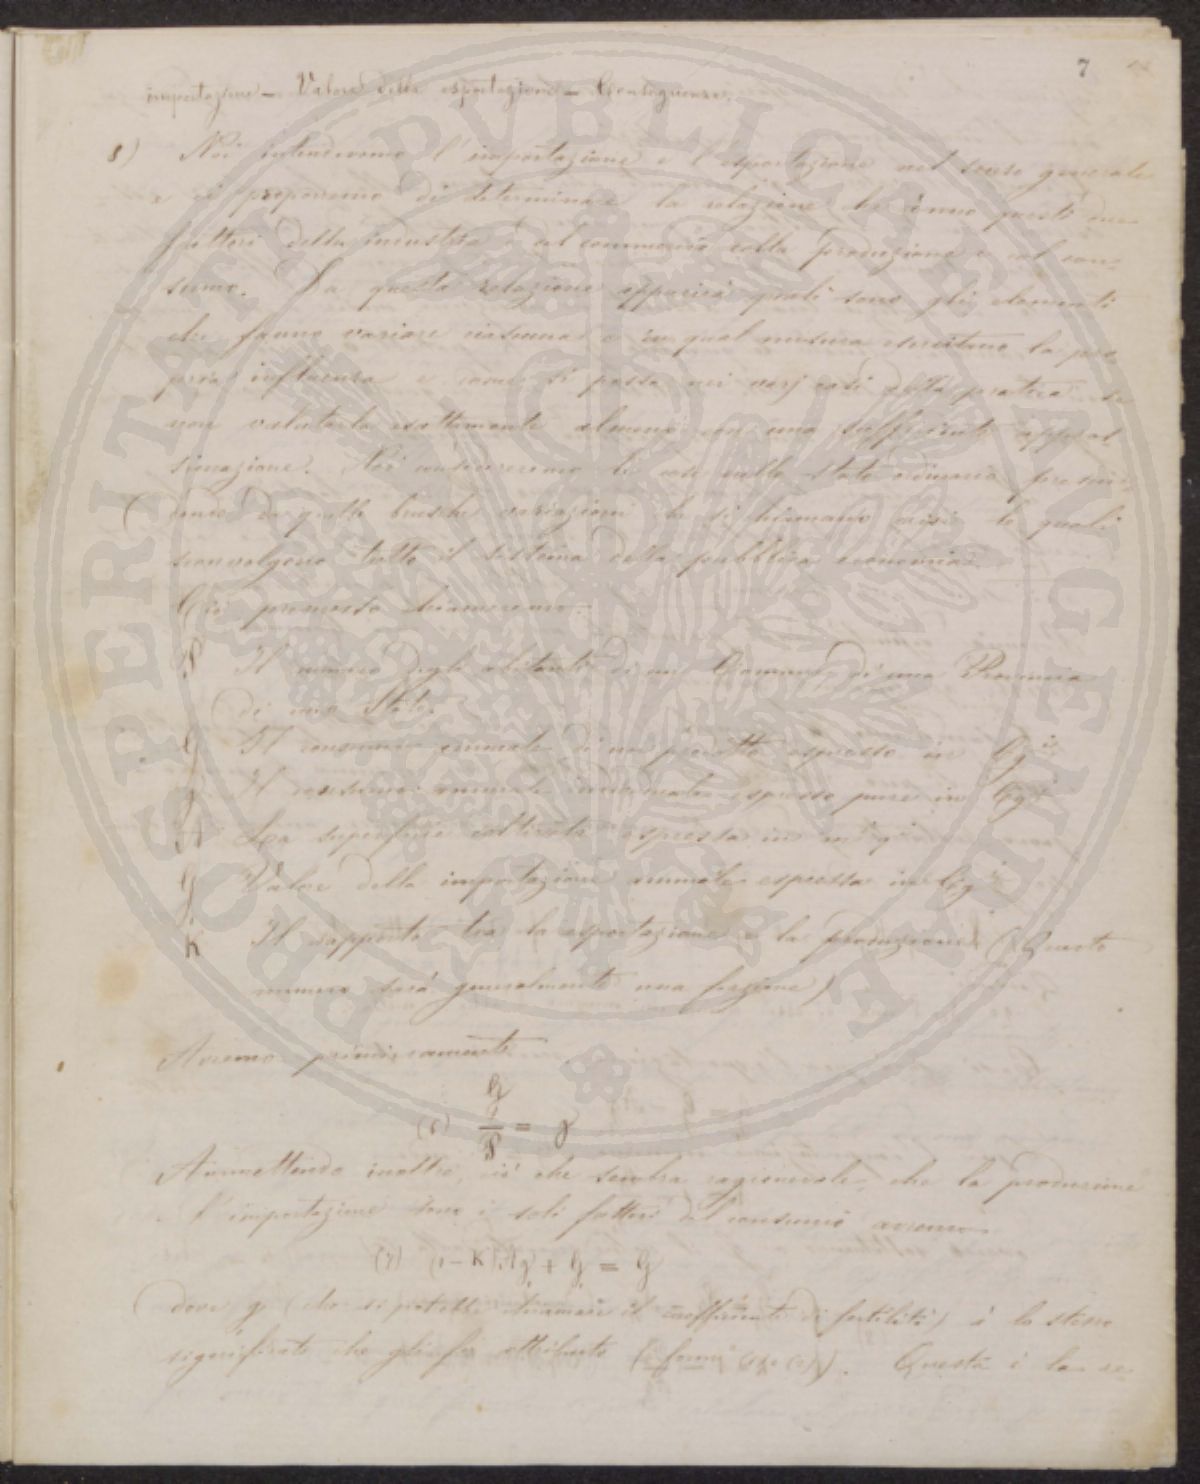 7
importazione – Valore della esportazione – Conseguenze.
8) Noi intenderemo l'importazione e l'esportazione nel senso generale
e ci proponiamo di determinare la relazione che hanno questi due
fattori della industria e del commercio colla produzione e col con-
sumo. Da questa relazione apparirà quali sono gli elementi
che fanno variare ciascuna e in qual misura esercitano la pro
pria influenza e come si possa nei varj casi della pratica se
non valutarla esattamente almeno con una sufficiente appros
simazione. Noi considereremo le cose nello stato ordinario prescin-
dendo da quelle brusche variazioni che si chiamano crisi le quali
sconvolgono tutto il sistema della pubblica economia.
Ciò premesso chiameremo:
P Il numero degli abitanti di un Comune, di una Provincia
di uno Stato.
G Il consumo annuale di un prodotto espresso in Cg.i
g Il consumo annuale individuale espresso pure in Cg.i
A La superficie coltivata espressa in m.i q.i
Valore della importazione annuale espressa in Cg.i
K Il rapporto tra la esportazione e la produzione (Questo
numero sarà generalmente una frazione)
Avremo primieramente
(6) G/P = g
Ammettendo inoltre, ciò che sembra ragionevole, che la produzione
e l'importazione sono i soli fattori del consumo avremo
(7) (1 – K) A g + G = G
dove g (che si potrebbe chiamare il coefficiente di fertilità) à lo stesso
significato che gli fu attribuito (form.e (1) e (2)). Questa è la re-